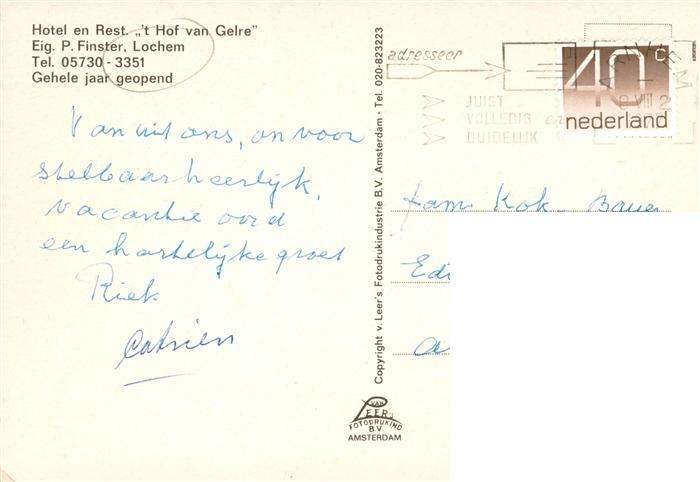 Hotel en Rest. „'t Hof van Gelre”
Eig. P. Finster, Lochem
Tel. 05730 - 3351
Gehele jaar geopend
Van uit ons, on voor
stelbaar heerlijk,
vacantie oord
een hartelijke groet
Riek
Catrien
Copyright v. Leer's Fotodrukindustrie B.V. Amsterdam - Tel. 020-823223
VAN
LEER'S
FOTODRUKIND
B.V.
AMSTERDAM
adresseer
JUIST
VOLLEDIG en
DUIDELIJK
ARNHEM
40 c
nederland
fam Kok - Bauer
Edi